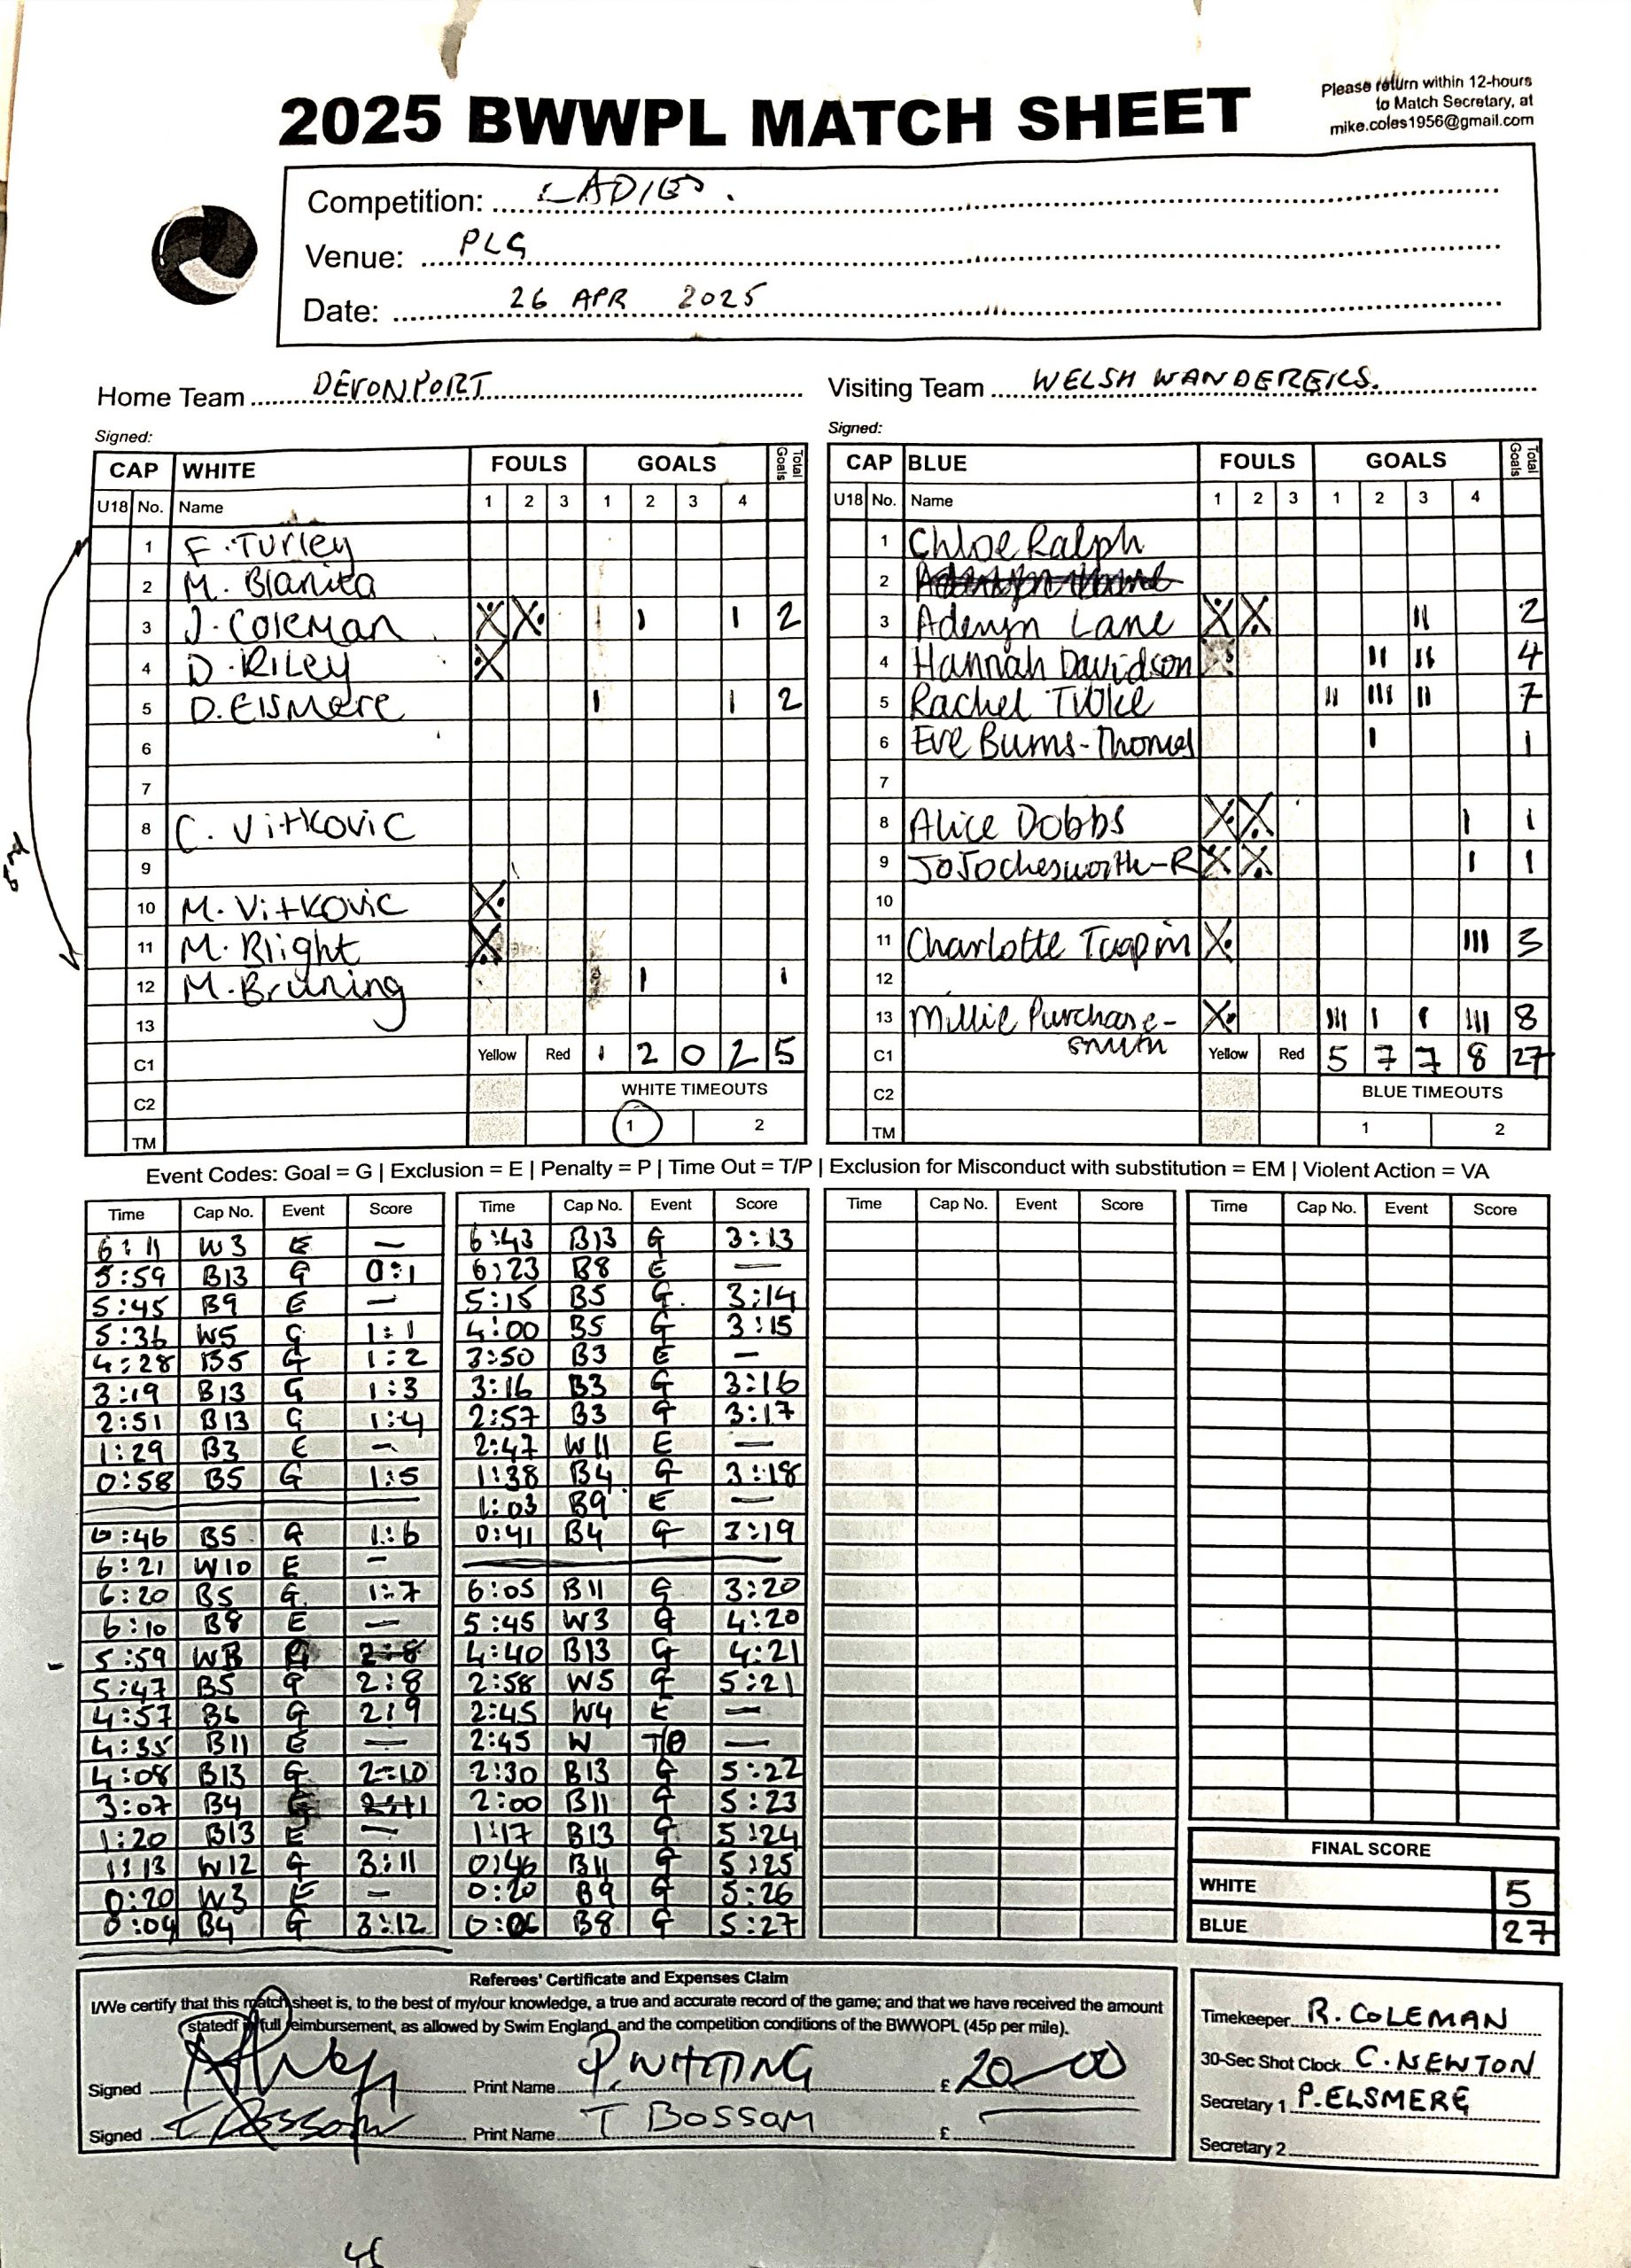 Please return within 12-hours
to Match Secretary, at
mike.coles1956@gmail.com
2025 BWWPL MATCH SHEET
Competition: LADIES.
Venue: PLG
Date: 26 APR 2025
Home Team DEVONPORT
Visiting Team WELSH WANDERERS.
Signed:
CAP WHITE FOULS GOALS Total Goals
U18 No. Name 1 2 3 1 2 3 4
1 F. Turley
2 M. Blanita
3 J. Coleman X X I I I 2
4 D. Riley X
5 D. Elsmere I I 2
6
7
8 C. Vitkovic
9
10 M. Vitkovic X
11 M. Blight X
12 M. Bruning I I
13
C1 Yellow Red 1 2 0 2 5
C2 WHITE TIMEOUTS
TM 1 2
Signed:
CAP BLUE FOULS GOALS Total Goals
U18 No. Name 1 2 3 1 2 3 4
1 Chloe Ralph
2
3 Aderyn Lane X X II 2
4 Hannah Davidson X II II 4
5 Rachel II III II 7
6 Eve Burns-Thomas I 1
7
8 Alice Dobbs X X I 1
9 X X I 1
10
11 Charlotte X III 3
12
13 Millie Purchase-Smith X III I I III 8
C1 Yellow Red 5 7 7 8 27
C2 BLUE TIMEOUTS
TM 1 2
Event Codes: Goal = G | Exclusion = E | Penalty = P | Time Out = T/P | Exclusion for Misconduct with substitution = EM | Violent Action = VA
Time Cap No. Event Score
6:11 W3 E —
5:59 B13 G 0:1
5:45 B9 E —
5:36 W5 G 1:1
4:28 B5 G 1:2
3:19 B13 G 1:3
2:51 B13 G 1:4
1:29 B3 E —
0:58 B5 G 1:5
6:46 B5 G 1:6
6:21 W10 E —
6:20 B5 G. 1:7
6:10 B8 E —
5:59 W3 G 2:8
5:47 B5 G 2:8
4:57 B6 G 2:9
4:35 B11 E —
4:08 B13 G 2:10
3:07 B4 G 2:11
1:20 B13 E —
1:13 W12 G 3:11
0:20 W3 E —
0:04 B4 G 3:12
Time Cap No. Event Score
6:43 B13 G 3:13
6:23 B8 E —
5:15 B5 G. 3:14
4:00 B5 G 3:15
3:50 B3 E —
3:16 B3 G 3:16
2:57 B3 G 3:17
2:47 W11 E —
1:38 B4 G 3:18
1:03 B9 E —
0:41 B4 G 3:19
6:05 B11 G 3:20
5:45 W3 G 4:20
4:40 B13 G 4:21
2:58 W5 G 5:21
2:45 W4 E —
2:45 W TO —
2:30 B13 G 5:22
2:00 B11 G 5:23
1:17 B13 G 5:24
0:46 B11 G 5:25
0:20 B9 G 5:26
0:06 B8 G 5:27
Time Cap No. Event Score
Time Cap No. Event Score
FINAL SCORE
WHITE 5
BLUE 27
Referees' Certificate and Expenses Claim
I/We certify that this match sheet is, to the best of my/our knowledge, a true and accurate record of the game; and that we have received the amount
stated in full reimbursement, as allowed by Swim England, and the competition conditions of the BWWOPL (45p per mile).
Signed Print Name P. WHITING £ 20—00
Signed T Bossom Print Name T BOSSOM £
Timekeeper R. COLEMAN
30-Sec Shot Clock C. NEWTON
Secretary 1 P. ELSMERE
Secretary 2